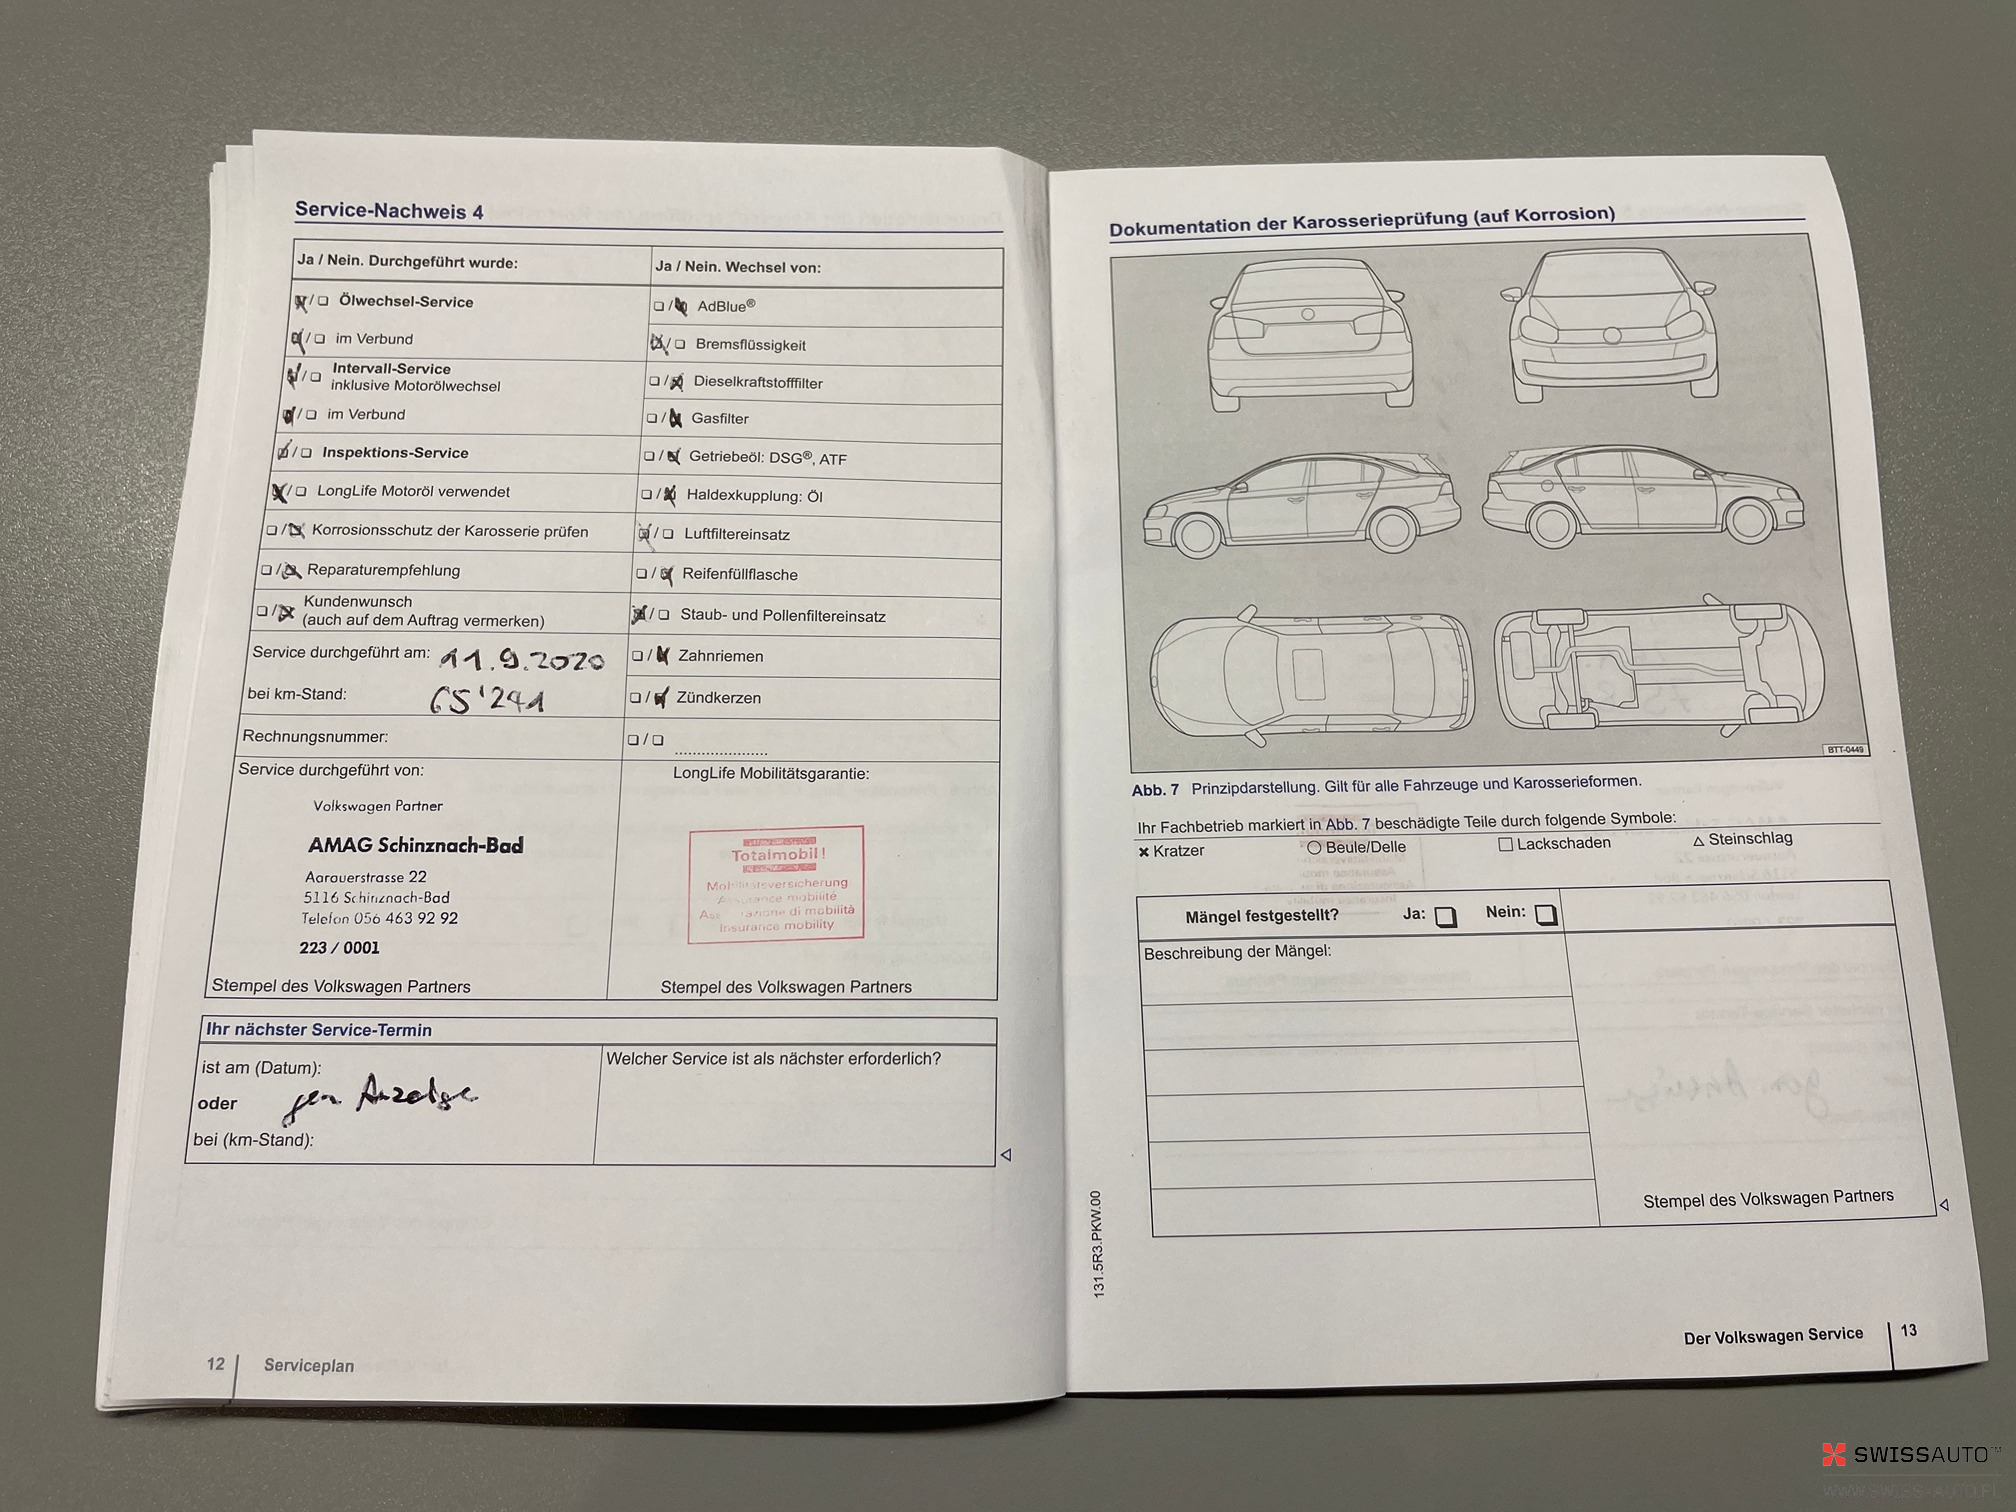 Service-Nachweis 4
Ja / Nein. Durchgeführt wurde:
Ölwechsel-Service
im Verbund
Intervall-Service
inklusive Motorölwechsel
im Verbund
Inspektions-Service
LongLife Motoröl verwendet
Korrosionsschutz der Karosserie prüfen
Reparaturempfehlung
Kundenwunsch
(auch auf dem Auftrag vermerken)
Service durchgeführt am: 11.9.2020
bei km-Stand: 65'241
Rechnungsnummer:
Ja / Nein. Wechsel von:
AdBlue®
Bremsflüssigkeit
Dieselkraftstofffilter
Gasfilter
Getriebeöl: DSG®, ATF
Haldexkupplung: Öl
Luftfiltereinsatz
Reifenfüllflasche
Staub- und Pollenfiltereinsatz
Zahnriemen
Zündkerzen
Service durchgeführt von:
Volkswagen Partner
AMAG Schinznach-Bad
Aarauerstrasse 22
5116 Schinznach-Bad
Telefon 056 463 92 92
223 / 0001
Stempel des Volkswagen Partners
LongLife Mobilitätsgarantie:
Totalmobil!
Mobilitätsversicherung
Assurance mobilité
di mobilità
Insurance mobility
Stempel des Volkswagen Partners
Ihr nächster Service-Termin
ist am (Datum):
oder gem Anzeige
bei (km-Stand):
Welcher Service ist als nächster erforderlich?
12 Serviceplan
Dokumentation der Karosserieprüfung (auf Korrosion)
BTT-0449
Abb. 7 Prinzipdarstellung. Gilt für alle Fahrzeuge und Karosserieformen.
Ihr Fachbetrieb markiert in Abb. 7 beschädigte Teile durch folgende Symbole:
Kratzer Beule/Delle Lackschaden Steinschlag
Mängel festgestellt? Ja: Nein:
Beschreibung der Mängel:
Stempel des Volkswagen Partners
131.5R3.PKW.00
Der Volkswagen Service 13
SWISSAUTO™